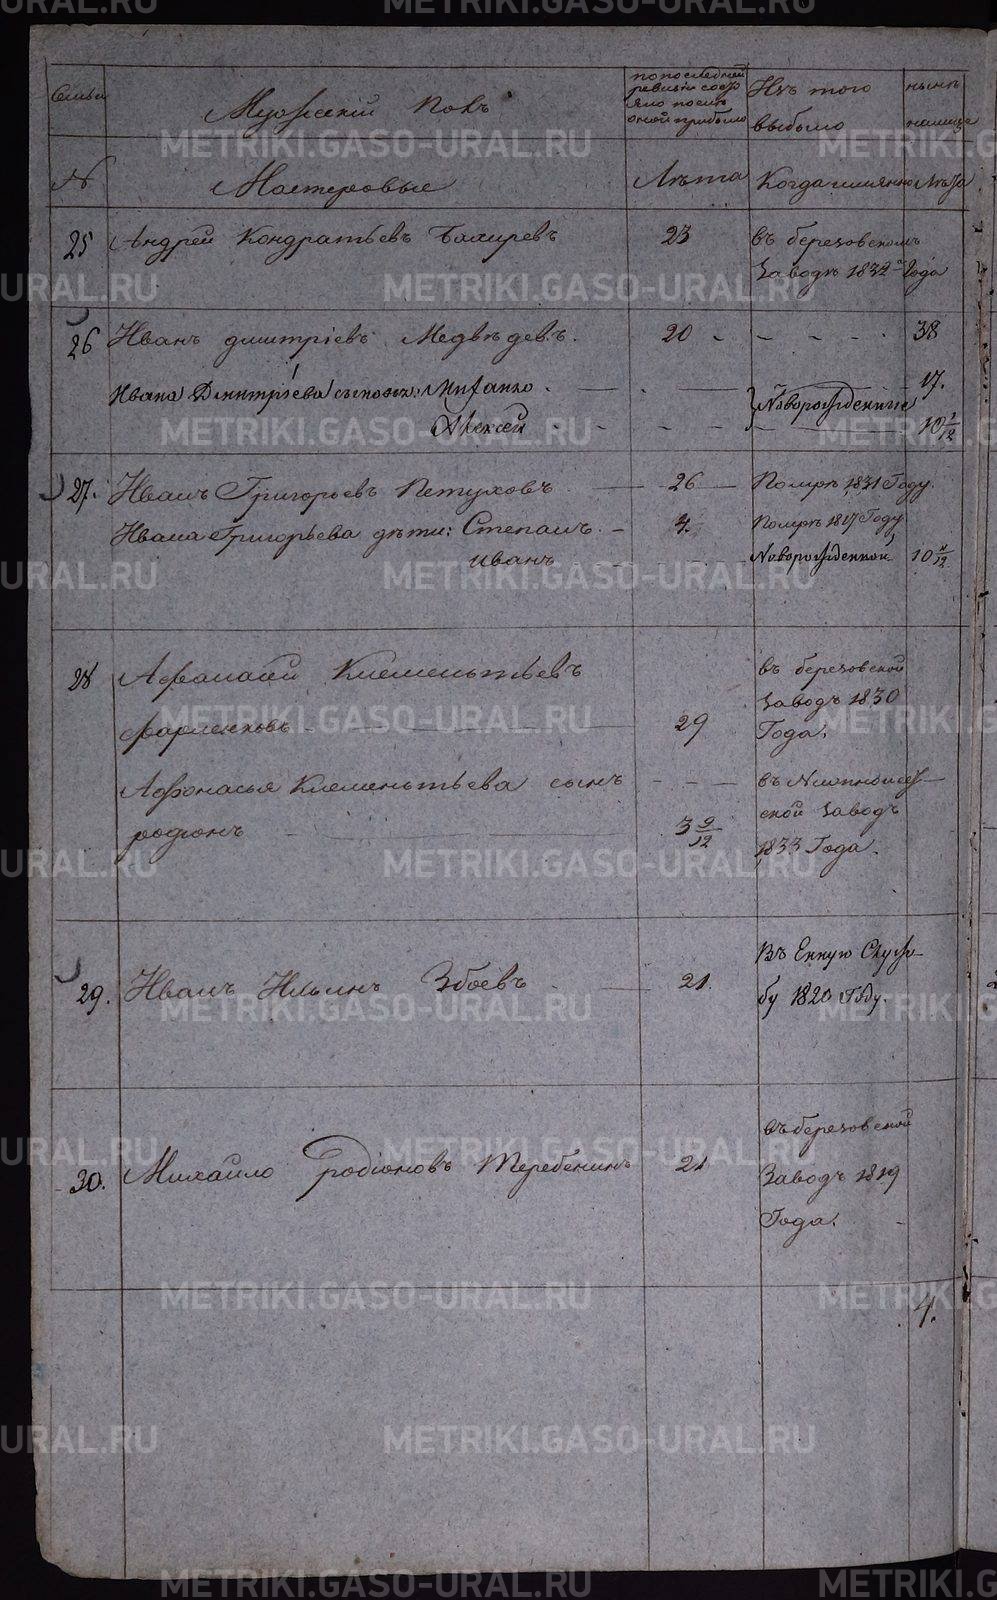 Семьи
Мужескій полъ
по последней
ревизіи состо
яло после
оной прибыло
Изъ того
выбыло
нынѣ
налице
№
Мастеровые
Лѣта
Когда имянно
Лѣта
25
Андрей Кондратьевъ Бахиревъ
23
въ березовскомъ
Заводѣ 1832 Года
26
Иванъ дмитріевъ Медвѣдевъ.
20
38
Ивана Дмитріева сыновья: Михайло
17.
Новорожденные
Алексей
10 1/12
27.
Иванъ Григорьевъ Петуховъ
26
Помрѣ 1831 Году.
Ивана Григорьева дѣти: Степанъ
4.
Помрѣ 1817 Году
иванъ
Новорожденной
10 /12
28
Афанасий Клеменьтьевъ
въ березовской
Заводъ 1830
29
Года.
Афонасья Клеменьтьева сынъ
въ
ской Заводъ
родіонъ
3 9/12
1833 Года.
29.
Иванъ Ильинъ Збоевъ
21.
Въ Енную Служ
бу 1820 Году.
30.
Михайло родіоновъ Теребенинъ
21
въ березовской
Заводъ 1819
Года.
4.
METRIKI.GASO-URAL.RU